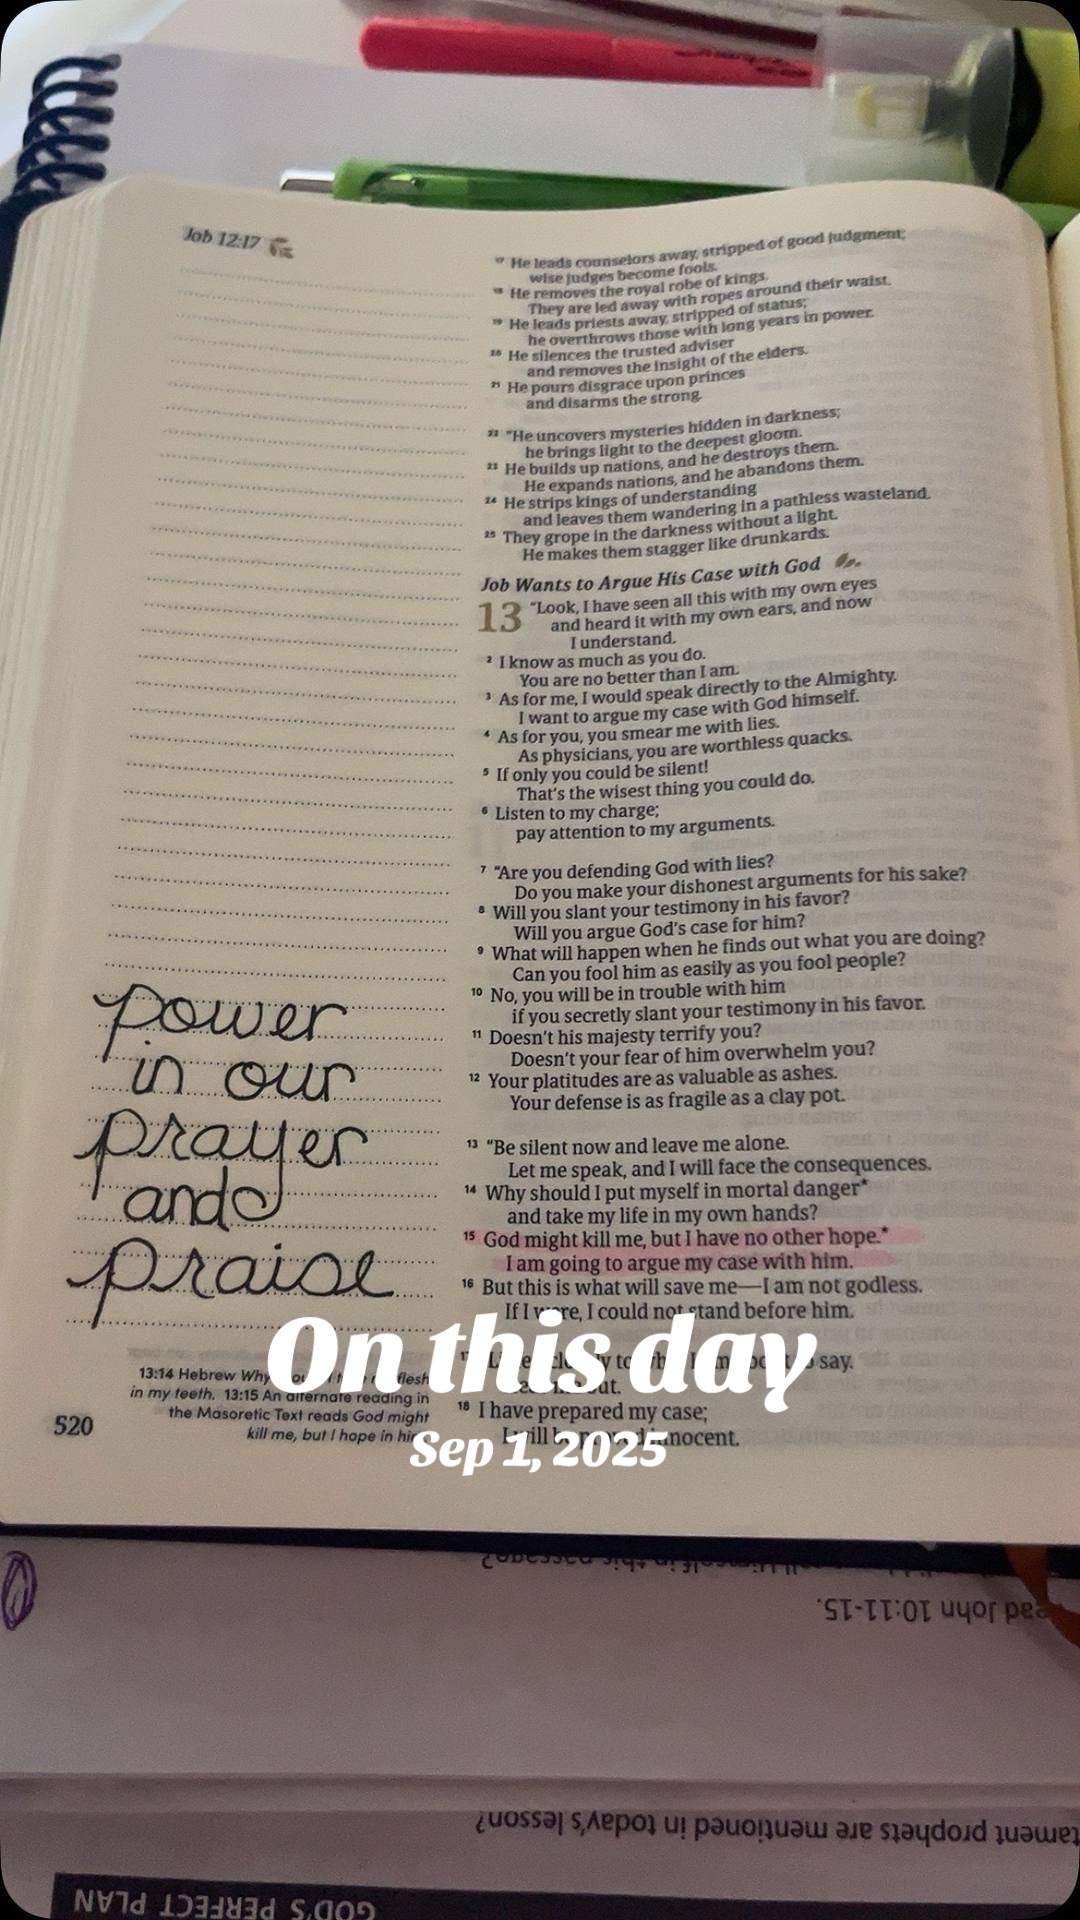 Job 12:17
17 He leads counselors away, stripped of good judgment;
wise judges become fools.
18 He removes the royal robe of kings.
They are led away with ropes around their waist.
19 He leads priests away, stripped of status;
he overthrows those with long years in power.
20 He silences the trusted adviser
and removes the insight of the elders.
21 He pours disgrace upon princes
and disarms the strong.
22 “He uncovers mysteries hidden in darkness;
he brings light to the deepest gloom.
23 He builds up nations, and he destroys them.
He expands nations, and he abandons them.
24 He strips kings of understanding
and leaves them wandering in a pathless wasteland.
25 They grope in the darkness without a light.
He makes them stagger like drunkards.
Job Wants to Argue His Case with God
13 “Look, I have seen all this with my own eyes
and heard it with my own ears, and now
I understand.
2 I know as much as you do.
You are no better than I am.
3 As for me, I would speak directly to the Almighty.
I want to argue my case with God himself.
4 As for you, you smear me with lies.
As physicians, you are worthless quacks.
5 If only you could be silent!
That’s the wisest thing you could do.
6 Listen to my charge;
pay attention to my arguments.
7 “Are you defending God with lies?
Do you make your dishonest arguments for his sake?
8 Will you slant your testimony in his favor?
Will you argue God’s case for him?
9 What will happen when he finds out what you are doing?
Can you fool him as easily as you fool people?
10 No, you will be in trouble with him
if you secretly slant your testimony in his favor.
11 Doesn’t his majesty terrify you?
Doesn’t your fear of him overwhelm you?
12 Your platitudes are as valuable as ashes.
Your defense is as fragile as a clay pot.
13 “Be silent now and leave me alone.
Let me speak, and I will face the consequences.
14 Why should I put myself in mortal danger*
and take my life in my own hands?
15 God might kill me, but I have no other hope.*
I am going to argue my case with him.
16 But this is what will save me—I am not godless.
If I were, I could not stand before him.
17 say.
out.
18 I have prepared my case;
I will be proved innocent.
power
in our
prayer
and
praise
13:14 Hebrew Why flesh
in my teeth. 13:15 An alternate reading in
the Masoretic Text reads God might
kill me, but I hope in
520
On this day
Sep 1, 2025
in this passage?
ead John 10:11-15.
tament prophets are mentioned in today’s lesson?
GOD’S PERFECT PLAN